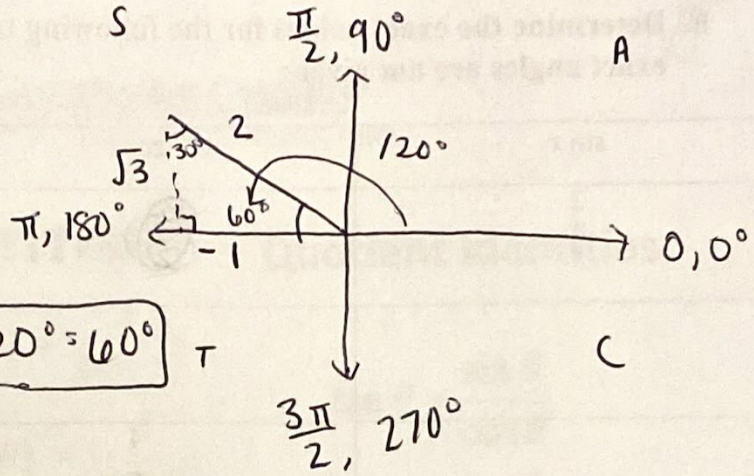 S
π/2, 90°
A
2
120°
30°
√3
60°
π, 180°
-1
0, 0°
20° = 60°
T
C
3π/2, 270°